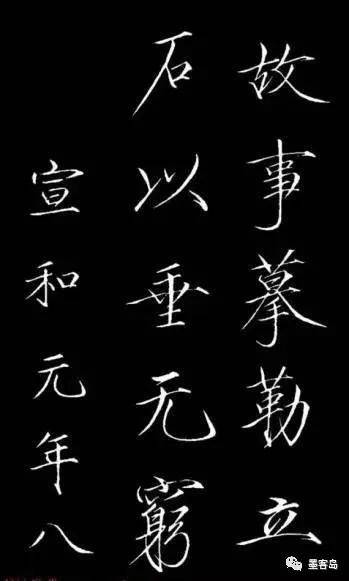 故事摹勒立
石以垂无窮
宣和元年八
墨客岛